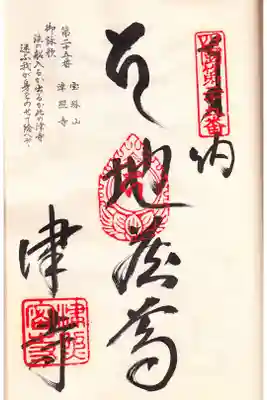 四国第二十五番
地蔵尊
津寺
第二十五番 宝珠山
津照寺
御詠歌
法の船入るか出るか此の津寺
迷ふ我が身をのせて給へや